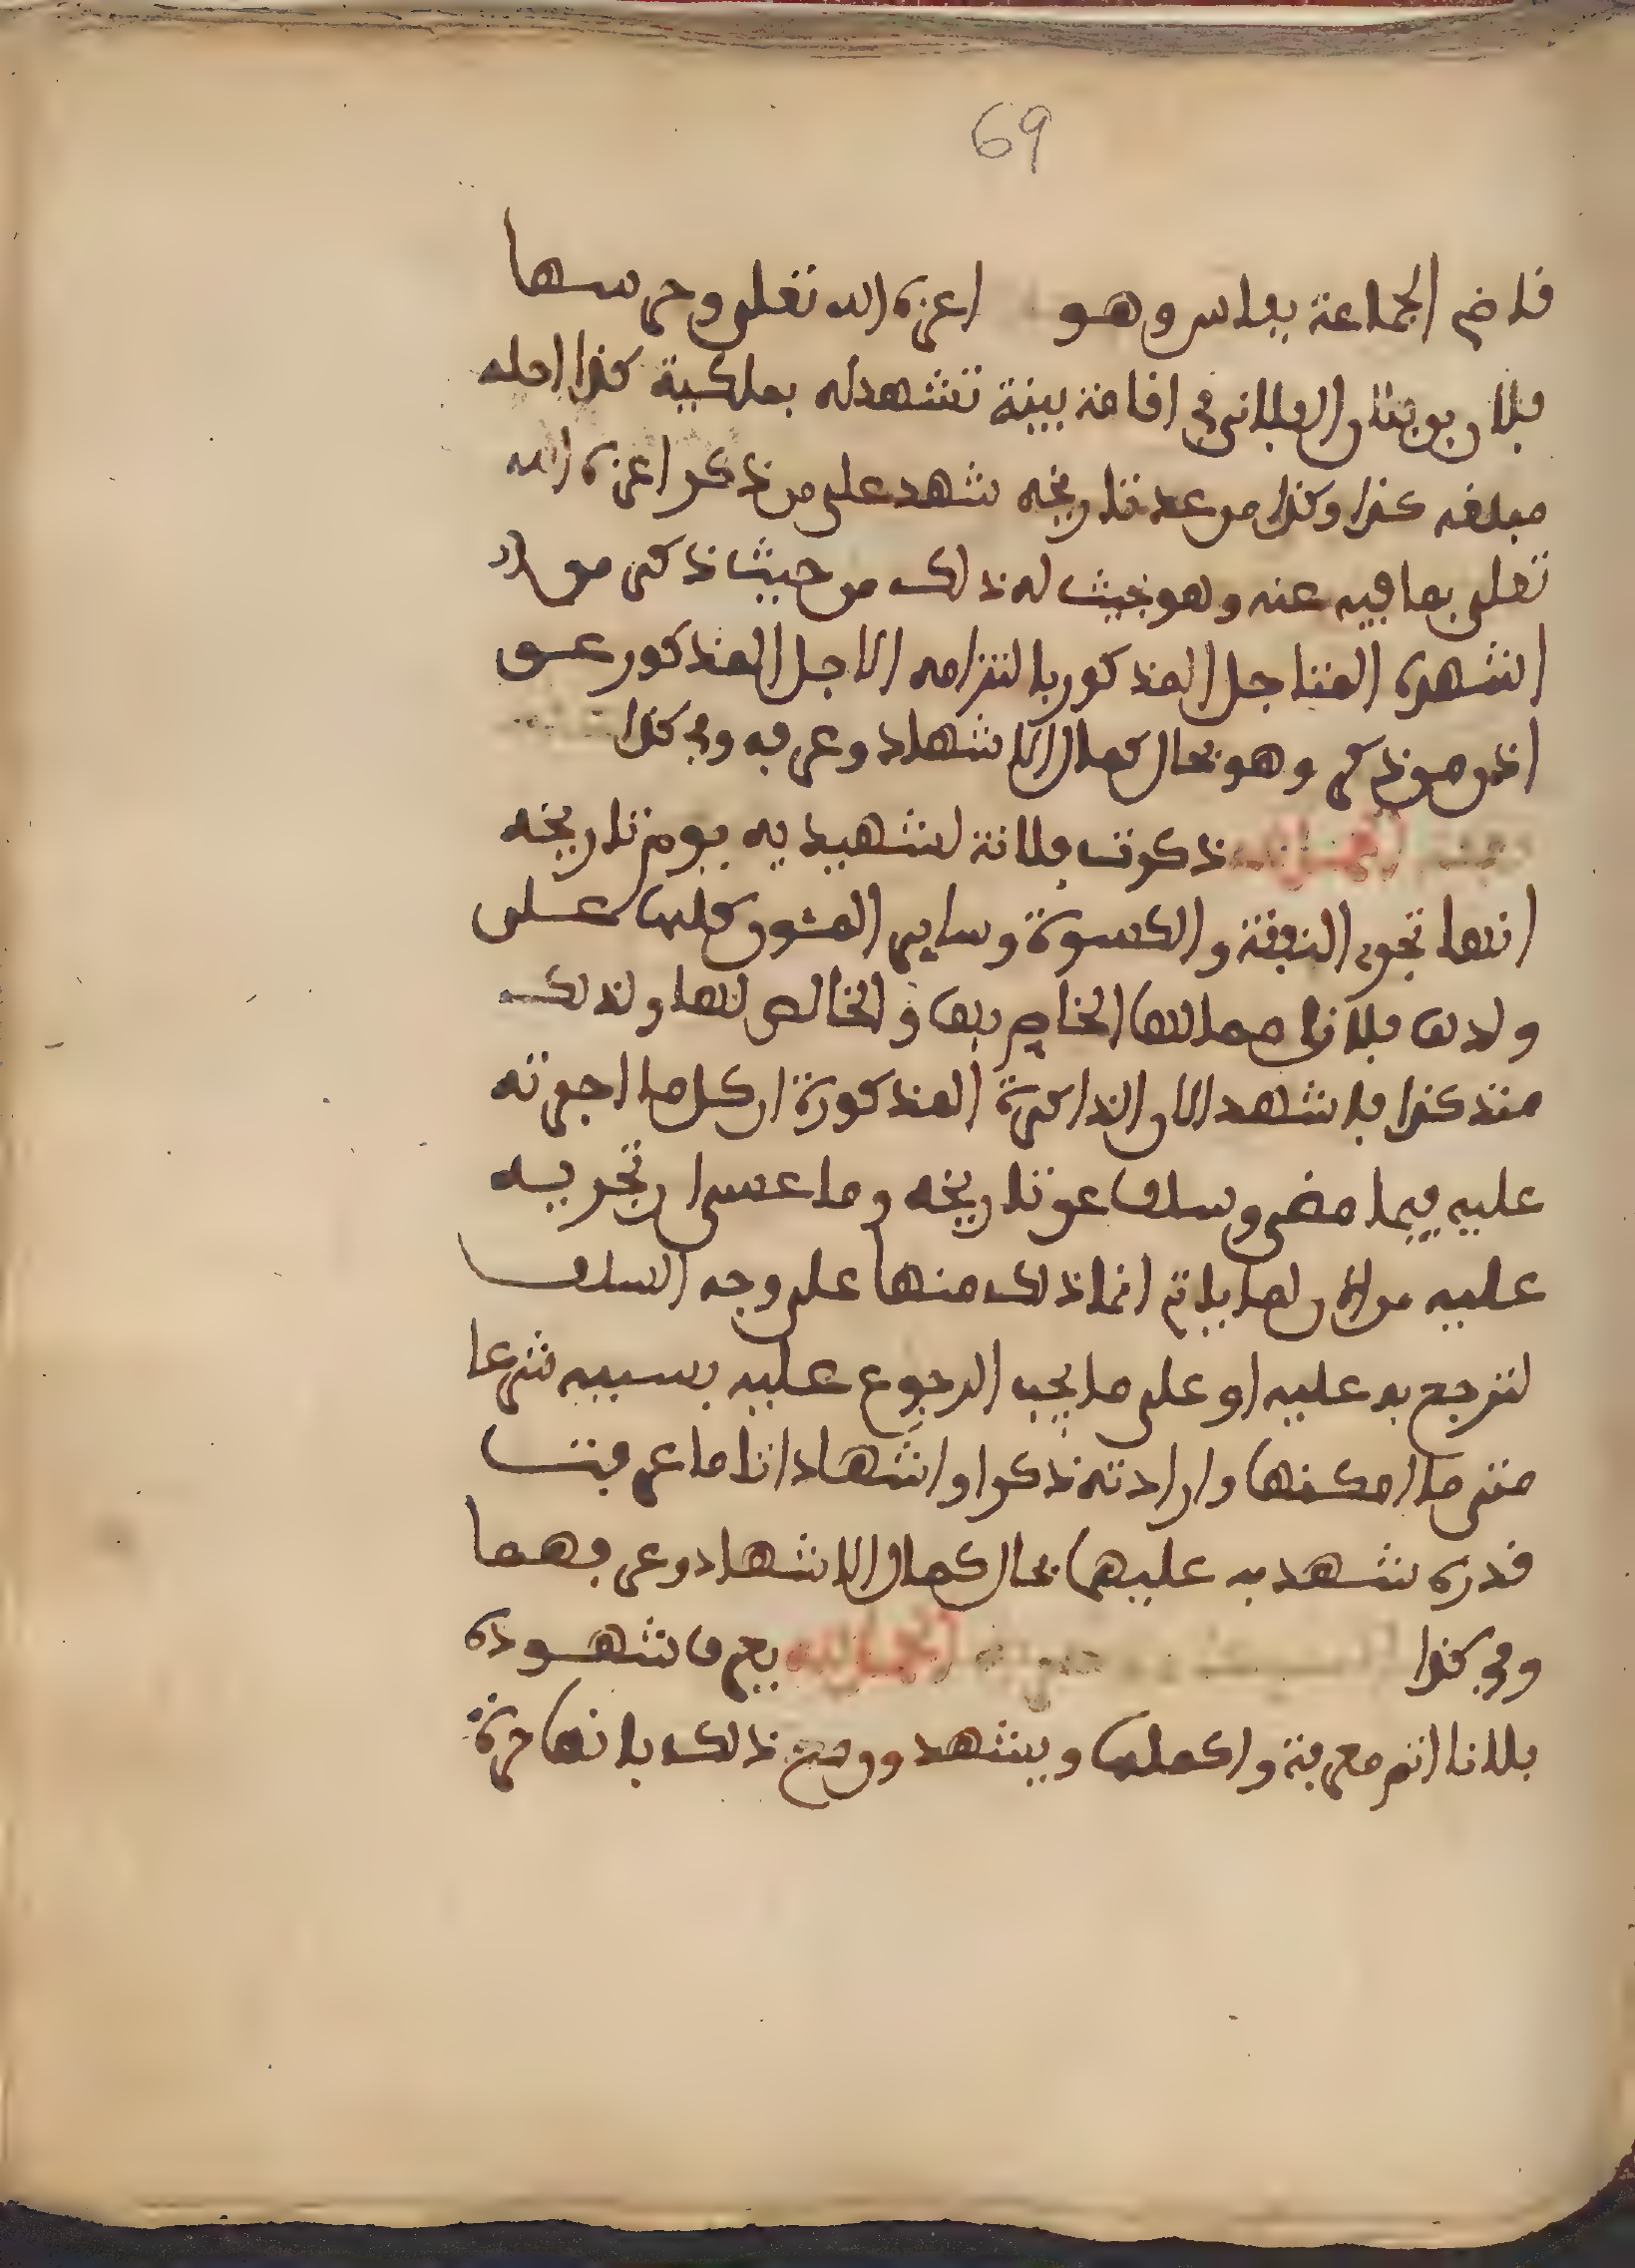 69
قاضي الجماعة بفاس وهو اعزه الله تعلى وحرسها
فلان بن فلان الفلاني في اقامة بينة تشهد له بملكية كذا اجله
مبلغه كذا وكذا من عد تاريخه شهد على من ذكر اعزه الله
تعلى بما فيه عنه وهو بحيث له ذلك من حيث ذكر من
اشهده المتاجل المذكور بالتزامه الاجل المذكور عن
اذن من ذكر وهو بحال كمال الاشهاد وعرفه وفي كذا
الحمد لله ذكرت فلانة لشهيديه يوم تاريخه
انها تجري النفقة والكسوة وساير المئون كلها على
ولدها فلان من مالها الخاص بها والخالص لها ولذلك
منذ كذا فاشهد الان الذاكرة المذكورة ان كل ما اجرته
عليه فيما مضى وسلف عن تاريخه وما عسى ان تجريه
عليه من الان لما ياتي انما ذلك منها على وجه السلف
لترجع به عليه او على ما يجب الرجوع عليه بسببه شرعا
متى ما امكنها وارادته ذكرا واشهادا تاما عرفت
قدره شهد به عليها بحال كمال الاشهاد وعرفهما
وفي كذا الحمد لله يعرف شهوده
فلانا اتم معرفة واكملها ويشهدون مع ذلك بانها حرة